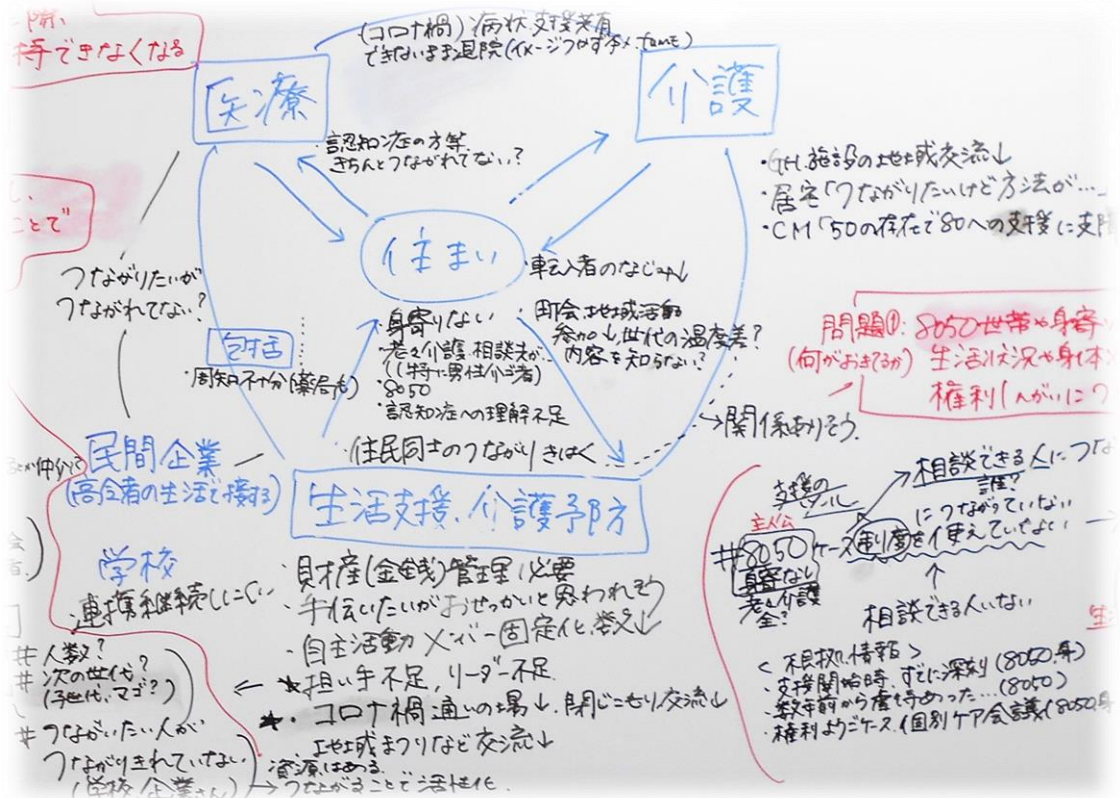 際、
持できなくなる
(コロナ禍) 病状、支援共有
できないまま退院(イメージつかず
医療
介護
・認知症の方等、
きちんとつながれてない?
・GH、施設の地域交流↓
・居宅「つながりたいけど方法が…
・CM「50の存在で80への支援に支障
ことで
住まい
・転入者のなじみ↓
つながりたいが
つながれてない?
・身寄りない
・老々介護、相談夫が
(特に男性介ゴ者)
・8050
・認知症への理解不足
・町会、地域活動
参加↓世代の温度差?
内容を知らない?
包括
・周知不十分(薬局も)
問題①: 8050世帯や身寄
(何がおきてるか) 生活状況や身体
権利しんがいにつ
→関係ありそう。
・住民同士のつながりきはく
民間企業
(高令者の生活で接する)
生活支援、介護予防
学校
・連携継続しにくい
・財産(金銭)管理必要
・手伝いたいがおせっかいと思われそう
・自主活動メンバー固定化、
← ★担い手不足、リーダー不足
★・コロナ禍通いの場↓、閉じこもり交流↓
・地域まつりなど交流↓
資源はある。
→つながることで活性化。
# 人数?
# 次の世代?
(子世代、マゴ?)
# つながいたい人が
つながりきれていない
(学校、企業さん)
支援の
主人公
# 8050ケース
身寄なし
老々介護
相談できる人につな
誰?
につながっていない
制度を使えていない
↑
相談できる人いない
<根拠、情報>
・支援開始時、すでに深刻(8050、身)
・数年前から
(8050)
・権利ようごケース、個別ケア会議(8050、身